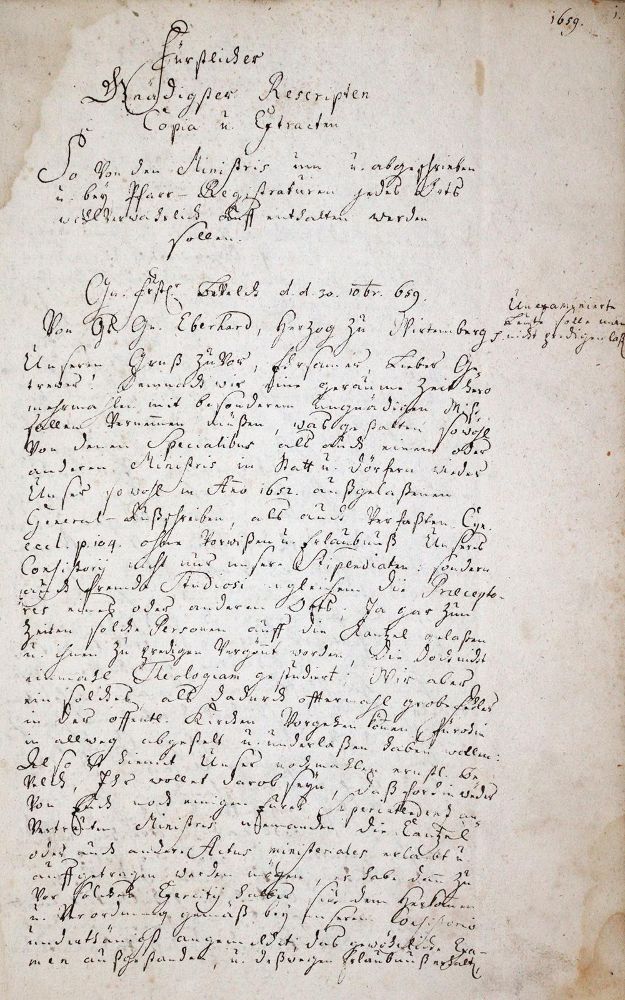 1659.
1.
Fürstlicher
Gnädigster Rescripten
Copia u. Extracten
So von den Ministris umb u. abgeschrieben
u. bey Pfarr-Registraturen jedes Orts
auff enthalten werden
sollen.
Gn. Fürstl. Befelch d. d. 30. 10br. 659.
Von Gn. Eberhard, Herzog zu Wirtemberg
Unexaminierte
Leute solle man
nicht predigen laß
Unseren Gruß zuvor, Ersamer, Lieber Ge-
treuer! Demnach wir eine geraume Zeit hero
mehrmahlen mit besonderem ungnädigen Miß-
fallen vernemmen müßen, was gestalten sowohl
von denen Specialibus als auch einem oder
anderen Ministris in Statt u. Dörfern wieder
Unser so wohl in Anno 1652. außgelaßenen
General-Außschreiben, als auch verfaßten Cyn.
eccl. p. 104. ohne Vorwißen u. Erlaubnuß Unsers
Consistorij nicht nur unsere Stipendiaten: sondern
auch fremde Studiosi ingleichem die Præcepto-
res eines oder anderen Orts, Ja gar zun
Zeiten solche Personen auff die Kanzel gelaßen
u. ihnen zu predigen vergönt worden, die doch nicht
einmahl Theologiam gestudiert; Wir aber
ein solches, als dadurch offtermahl grobe fehler
in der offentl. Kirchen vorgehen könen, fürohin
in allweg abgestelt u. underlaßen haben wollen:
Also ist hiemit Unser nochmahlen ernstl. Be-
velch, Ihr wollet darob seyn, daß forthin weder
von Euch noch einigen Eurer Specialitet an-
vertrauten Ministris niemanden die Canzel
oder auch andere Actus ministeriales erlaubt u.
auffgetragen werden mögen, er habe dann zu
vor solchen Exercitij halber sich dem Herkomen
u. Verordnung gemäß bey unserem Consistorio
underthänigst angemeldet, das gewöhnliche Exa-
men außgestanden, u. deßwegen Erlaubnuß erhalt.